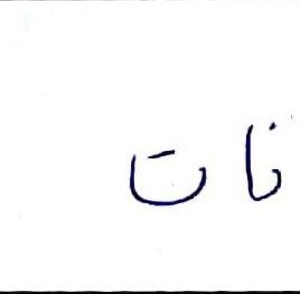 نات